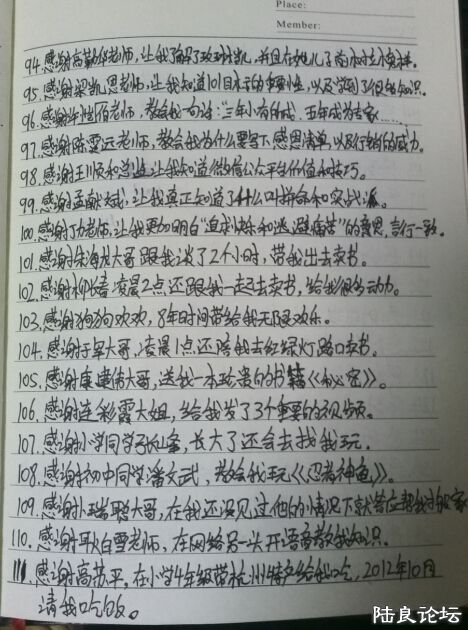 Place:
Member:
94.感谢高勤华老师，让我了解了玫琳凯，并且在她儿子
95.感谢梁凯恩老师，让我知道101目标的重要性，以及学到了很多知识。
96.感谢许老师，教会我一句话:“三年小有所成，五年成为专家……
97.感谢陈霆远老师，教会我为什么要写下感恩清单，以及行销的威力。
98.感谢王顺和总监，让我知道微信公众平台价值和技巧。
99.感谢孟献斌，让我真正知道了什么叫拼命和实战派。
100.感谢丁老师，让我更加明白“追求快乐和逃避痛苦”的意思，言行一致。
101.感谢朱海龙大哥跟我谈了2个小时，带我出去卖书。
102.感谢柳长春凌晨2点还跟我一起去卖书，给我很多动力。
103.感谢狗狗欢欢，8年时间带给我无限欢乐。
104.感谢于军大哥，凌晨1点还陪我去红绿灯路口卖书。
105.感谢康建伟大哥，送我一本珍贵的书籍《秘密》。
106.感谢连彩霞大姐，给我发了3个重要的视频。
107.感谢小学同学张峰，长大了还会去找我玩。
108.感谢初中同学潘文武，教会我玩《忍者神龟》。
109.感谢孙瑞聪大哥，在我还没见过他的情况下就答应帮我
110.感谢耿白雪老师，在网络另一头开语音教我知识。
111.感谢高苏平，在小学4年级带杭州特产给我吃，2012年10月
请我吃饭。
陆良论坛